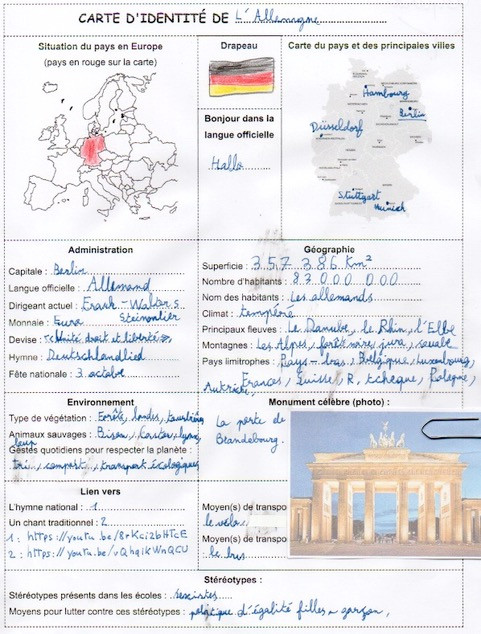 CARTE D'IDENTITÉ DE L'Allemagne
Situation du pays en Europe
(pays en rouge sur la carte)
Drapeau
Bonjour dans la
langue officielle
Hallo
Carte du pays et des principales villes
Hambourg
Berlin
Düsseldorf
Stuttgart
Munich
Administration
Capitale : Berlin
Langue officielle : Allemand
Dirigeant actuel : Frank-Walter
Steinmeier
Monnaie : Euro
Devise : "Unité droit et liberté"
Hymne : Deutschlandlied
Fête nationale : 3 octobre
Géographie
Superficie : 357 386 Km²
Nombre d'habitants : 83 000 000
Nom des habitants : Les allemands
Climat : tempéré
Principaux fleuves : Le Danube, le Rhin, l'Elbe
Montagnes : Les Alpes, forêt noire, jura, souabe
Pays limitrophes : Pays-bas, Belgique, Luxembourg,
Autriche, France, Suisse, R. tchèque, Pologne,
Environnement
Type de végétation : Forêts, landes, tourbières
Animaux sauvages : Bison, Castor, lynx,
loup
Gestes quotidiens pour respecter la planète :
tri, compost, transport écologiques
Monument célèbre (photo) :
La porte de
Brandebourg.
Lien vers
L'hymne national : 1
Un chant traditionnel : 2
1 : https://youtu.be/
2 : https://youtu.be/
Moyen(s) de transpo
le vélo
Moyen(s) de transpo
le bus
Stéréotypes :
Stéréotypes présents dans les écoles : sexistes
Moyens pour lutter contre ces stéréotypes : politique d'égalité filles garçon,